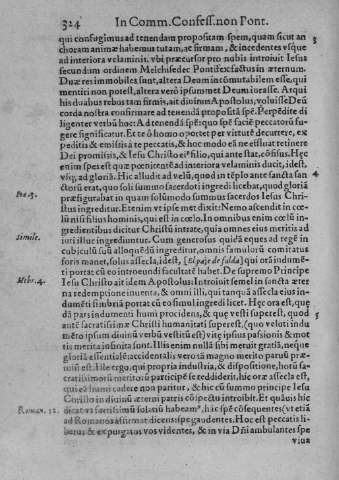 324 In Comm. Confess. non Pont.
qui confugimus ad tenendam propositam spem, quam sicut an
choram animæ habemus tutam, ac firmam, & incedentes vsque
ad interiora velaminis, vbi præcursor pro nobis introiuit Iesus
secundum ordinem Melchisedec Pontifex factus in æternum.
Duæ res immobiles sunt, altera Deum incōmutabilem esse, qui
mentiri non potest, altera verò ipsummet Deum iurasse. Atqui
his duabus rebus tam firmis, ait diuinus Apostolus, voluisse Deū
corda nostra confirmare ad tenendā propositā spē. Perpēdite di
ligenter verbū hoc: & tenendā spē: quo spē facile peccatorū fu-
gere significatur. Et te ô homo oportet per virtutē decurrere, ex
peditis & emissis à te peccatis, & hoc modo eā ne effluat retinere
Dei promissis, & Iesu Christo ei° filio, qui ante stat, cōfisus. Hęc
enim spes est quæ pœnitentē ad interiora velaminis ducit, idest,
vsq; ad gloriā. Hic alludit ad velū, quod in tēplo ante sancta san
ctorū erat, quo soli summo sacerdoti ingredi licebat, quod gloriā
præfigurabat in quam solūmodo summus sacerdos Iesus Chri-
Ioā. 3.
stus ingreditur. Etenim ve ipsemet dixit: Nemo ascendit in cœ-
lū nisi filius hominis, qui est in cœlo. In omnibus enim cœlū in-
gredientibus dicitur Christū intrate, quia omnes eius meritis ad
Simile.
iuti illuc ingrediuntur. Cum generosus quidā eques ad regē in
cubiculū suū alloquēdū ingreditur, omnis famulorū comitatus
foris manet, solus assecla, idest, (El paje de falda) qui ora indumē-
ti portat cū eo introeundi facultatē habet. De supremo Principe
Hebr. 4.
Iesu Christo ait idem Apostolus: Introiuit semel in sancta æter
na redemptione inuenta, & omni illi, qui tanquā assecla eius in-
dumēti fimbriā portat cū eo simul ingredi licet. Hęc ora est, quę
dā pars indumenti humi procidens, & quę vesti superest, quod
antē sacratissimæ Christi humanitati superest, (quo veloti indu
mēto ipsum diuinū verbū vestitū est) vitę ipsius passionis & mor
tis merita infinita sunt. Illis enim nullā sibi meruit gratiā, neque
gloriā essentialē: accidentalis vero tā magno merito paruū præ-
miū est. Ille ergo, qui propria industria, & dispositione, horū sa-
cratissimorū meritorū participē se reddiderit, hic oræ assecla est,
qui eā humi cadere non patitur, & hic cū summo principe Iesu
Christo in diuinū æternū patris cōspectu introibit. Et quāuis hic
Roman. 12.
dicatur fortissimū solatiū habeam°, hāc spē cōsequentes (vt etiā
ad Romanos affirmat dicens: spe gaudentes. Hoc est peccatis li-
beratus & expurgatus vos videntes, & in via Dn̄i ambulantes spe
viua